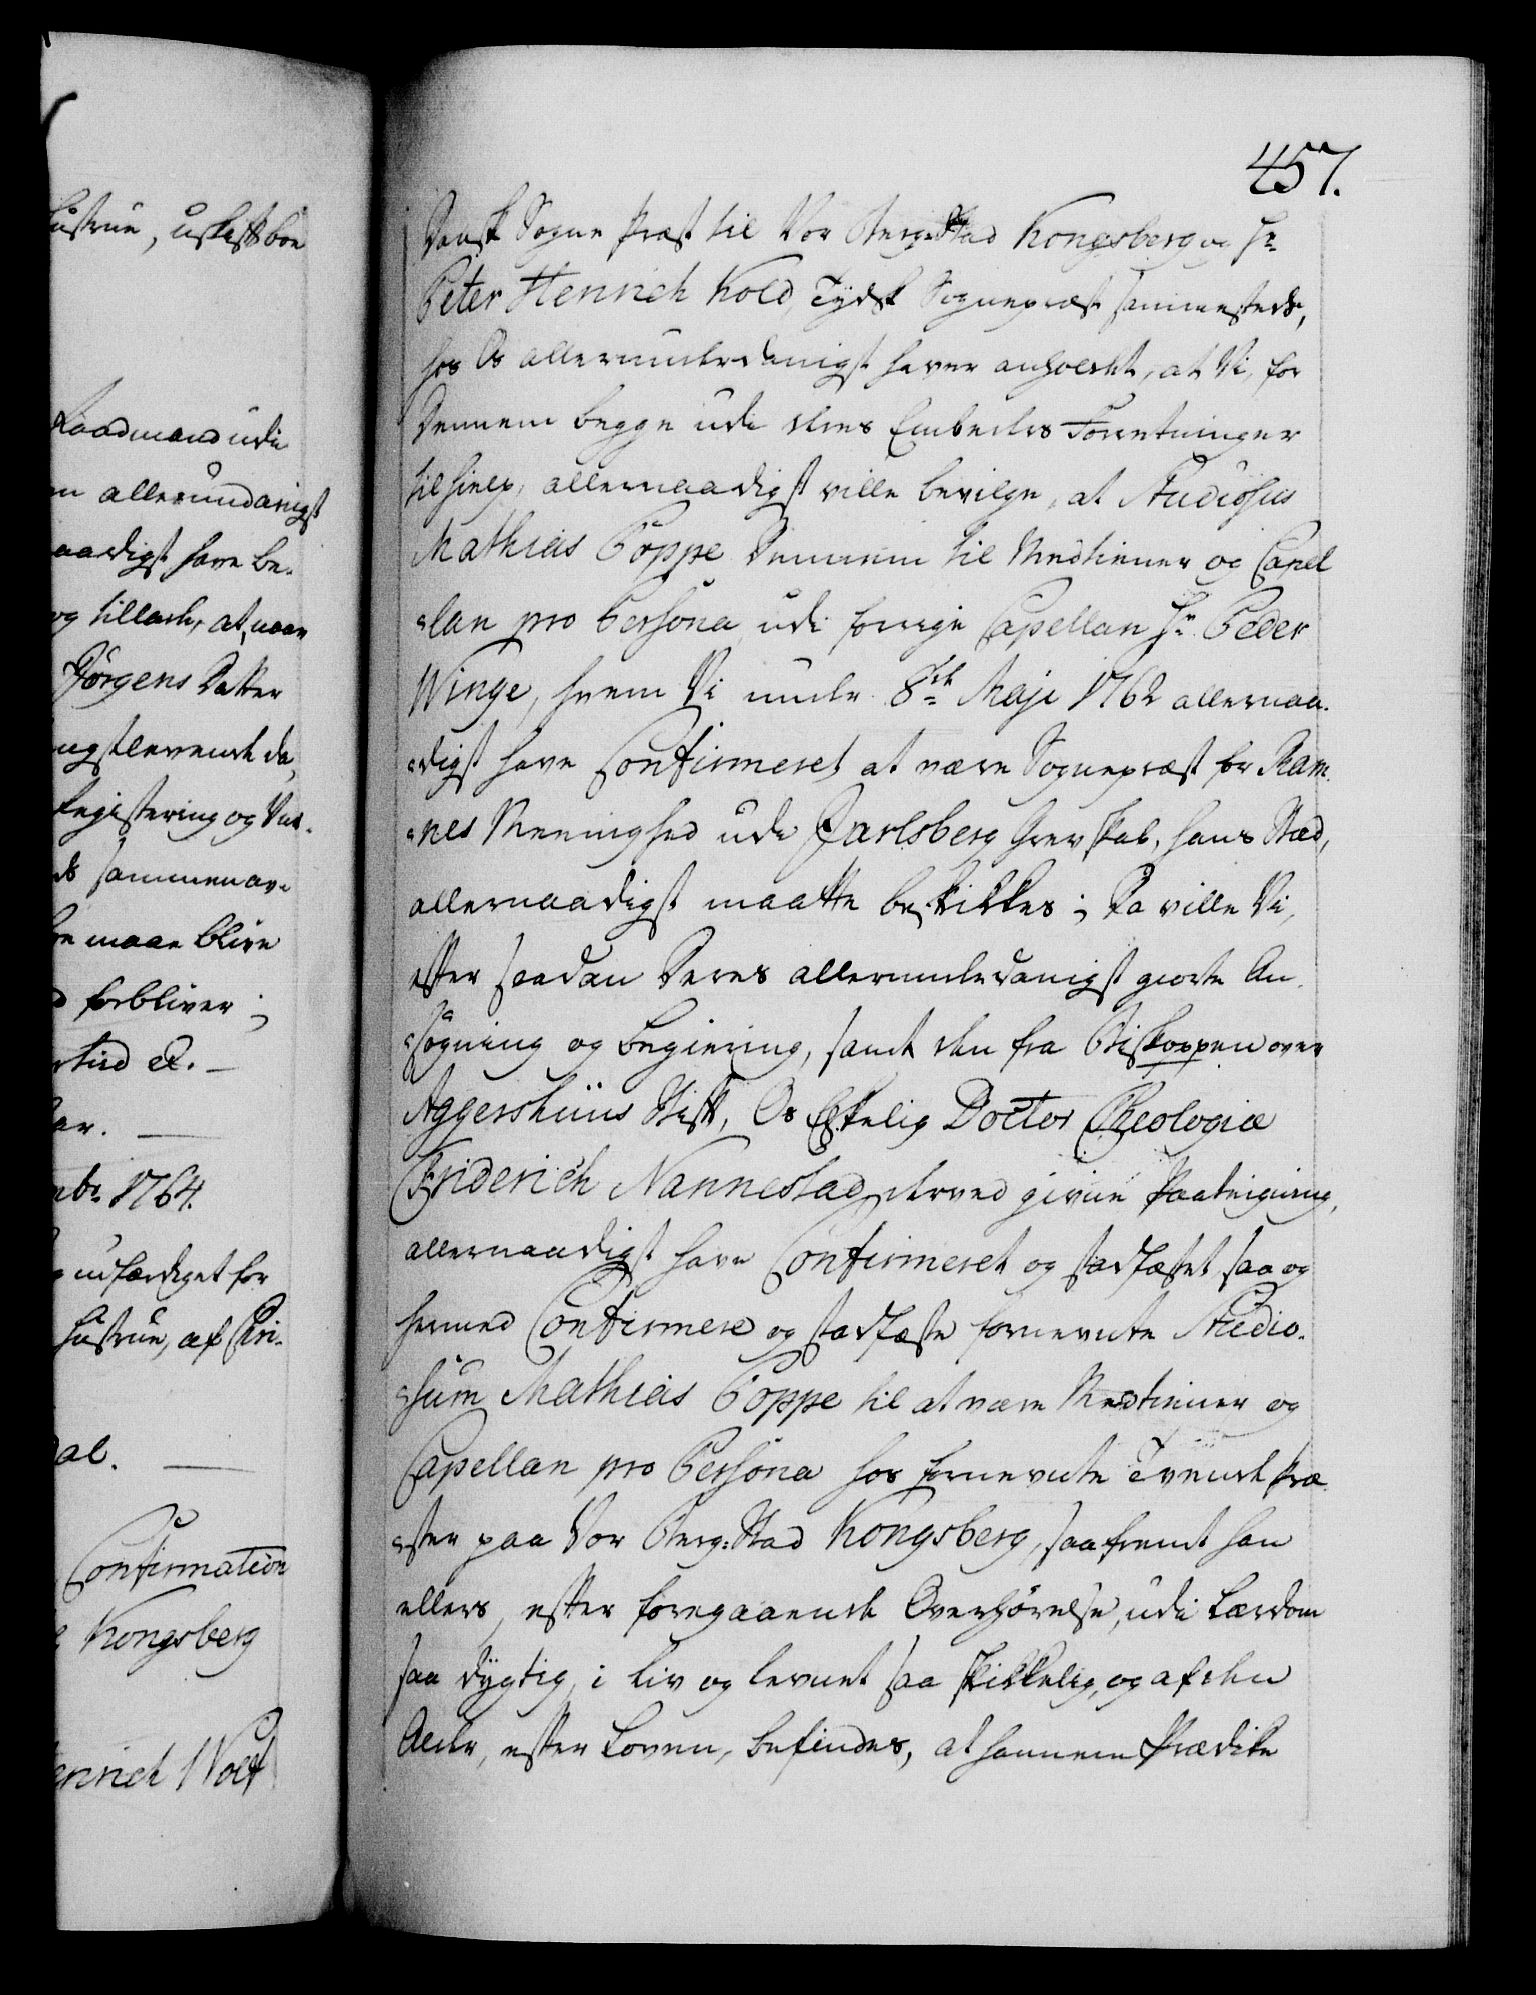 ustrue, uskiftboe
Raadmand udi
en allerundanigst
aadigst have be-
og tilladt, at, naar
Jörgens Datter
ngstlevende da,
Registering og Vur-
ds sammenav-
de maae blive
d forbliver;
rtud &c. -
ar. -
mbr. 1764.
udfærdiget for
Hustrue, af Chri-
dal. -
Confirmation
Kongsberg
enrich Wolf
457.
Dansk Sogne Præst til Vor Berg-Stad Kongsberg og Hr
Peter Henrich Kold, Tydsk Sognepræst sammesteds,
hos Os allerunderdanigst haver anholdet, at Vi, for
Dennem begge udi deres Embedes Forretninger
til hielp, allernaadigst ville bevilge, at Studiosus
Mathias Poppe Dennem til Medtiener og Capel
-lan pro Persona udi forrige Capellan Hr Peder
Winge, hvem Vi under 8de Maji 1762 allernaa-
-digst have Confirmeret at være Sognepræst for Ram-
-nes Meenighed udi Jarlsberg Grevskab, hans Sted,
allernaadigst maatte beskikkes; Da ville Vi,
efter saadan Deres allerunderdanigst giorte An-
-søgning og begiering, samt den fra Biskoppen over
Aggershuus Stift, Os Elskelig Doctor Theologiæ
Friderich Nannestad derved givne Paategning,
allernaadigst have Confirmeret og stadfæstet, saa og
hermed Confirmere og stadfæste fornevnte Studio-
-sum Mathias Poppe til at være Medtiener og
Capellan pro Persona hos fornevnte Tvende Præ-
-ster paa Vor Berg-Stad Kongsberg, saafremt han
ellers, efter foregaaende Overhørelse, udi Lærdom
saa dygtig, i Liv og levnet saa skikkelig, og af den
Alder, efter Loven, befindes, at hannem Prædike